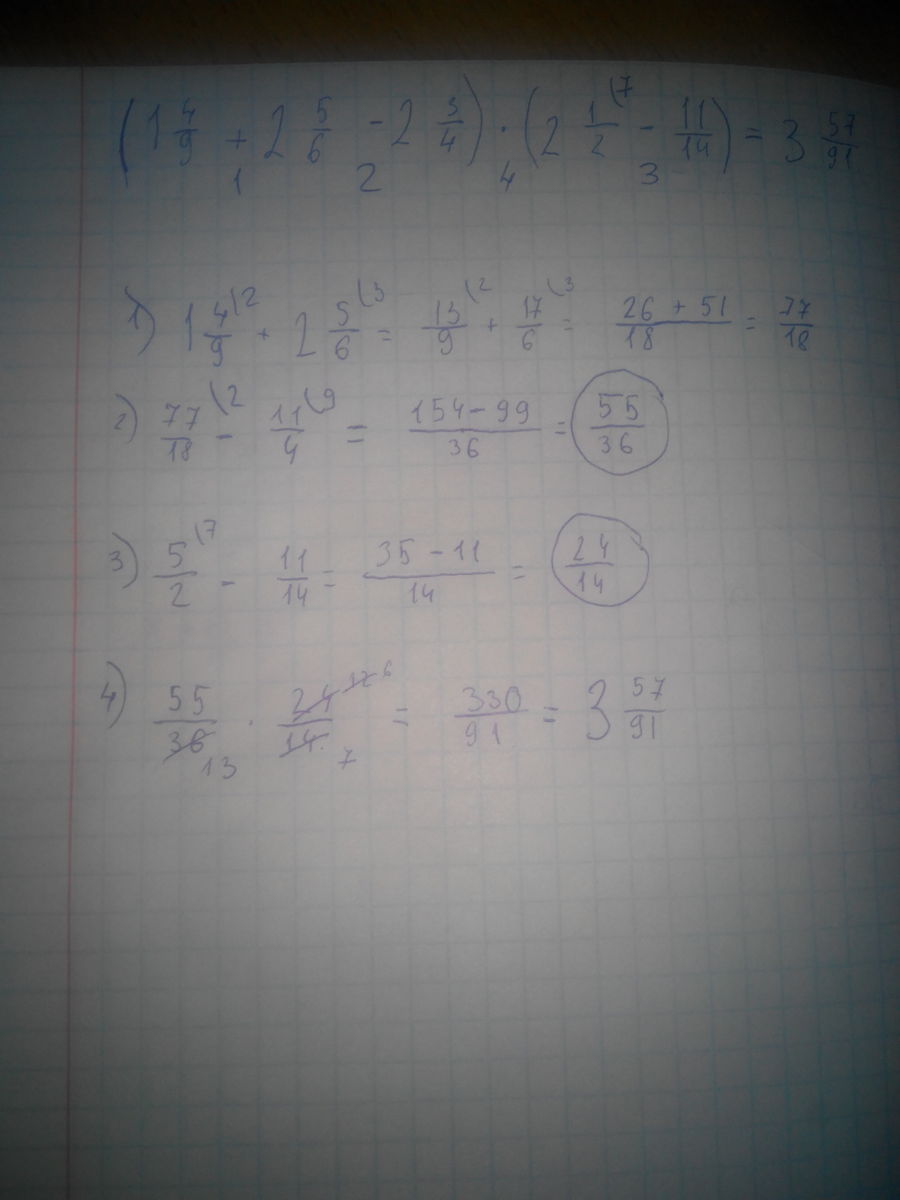 (1 4/9 + 2 5/6 - 2 3/4) · (2 1/2 (7 - 11/14) = 3 57/91
1 2 4 3
1) 1 4/9 (2 + 2 5/6 (3 = 13/9 (2 + 17/6 (3 = 26 + 51/18 = 77/18
2) 77/18 (2 - 11/4 (9 = 154 - 99/36 = 55/36
3) 5/2 (7 - 11/14 = 35 - 11/14 = 24/14
4) 55/36 13 · 24 12 6/14 7 = 330/91 = 3 57/91